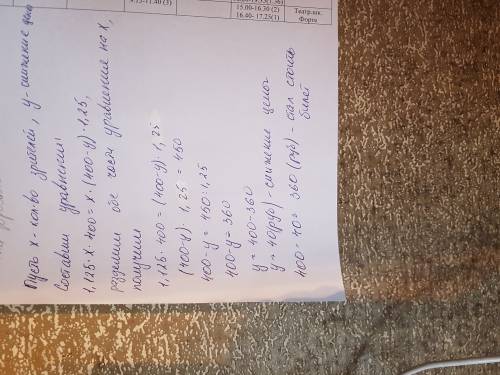 9.15-11.40 (3)
15.00-16.30 (2)
16.40- 17.25(1)
Театр.зан.
Форте
Пусть x - кол-во зрителей, y - снижение цены
Составим уравнение:
1,125·x·400 = x·(400-y)·1,25,
разделим обе части уравнения на x,
получим
1,125·400 = (400-y)·1,25
(400-y)·1,25 = 450
400-y = 450:1,25
400-y = 360
y = 400-360
y = 40(руб) - снижение цены
400-40 = 360 (руб) - стал стоить
билет